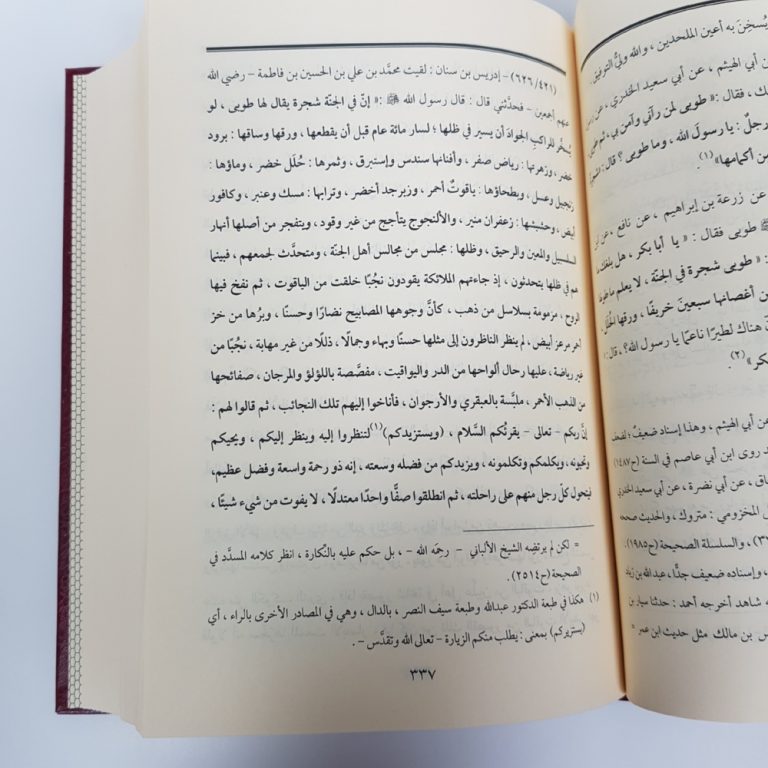 يُسخِنَ به أعين الملحدين ، والله وليُّ التوفيق.
بن أبي الهيثم ، عن أبي سعيد الخدري ، عن
ك ، فقال : « طوبى لمن رآني وآمن بي ، ثم طوبى
رجلٌ : يا رسول الله ، وما طوبى ؟ قال :
من أكمامها »(١).
عن زرعة بن إبراهيم ، عن نافع ، عن ابن
طوبى فقال : « يا أبا بكر ، هل بلغك ما
: « طوبى شجرة في الجنّة ، لا يعلم ما طولها
من أغصانها سبعينَ خريفًا ، ورقها الحُلَل
ن هناك لطيرًا ناعمًا يا رسول الله؟ ، قال :
بكر »(٢).
عن أبي الهيثم ، وهذا إسناد ضعيفٌ ؛ لضعف
روى ابن أبي عاصم في السنة (ح١٤٨٧
اق ، عن أبي نضرة ، عن أبي سعيد الخدري
المخزومي : متروك ، والحديث صححه
، والسلسلة الصحيحة (ح١٩٨٥).
، وإسناده ضعيف جدًّا ، عبدالله بن زياد
شاهد أخرجه أحمد : حدثنا سيار بن
س بن مالك مثل حديث ابن عمر =
(٦٢٦/٤٢١) – إدريس بن سنان : لقيت محمَّد بن علي بن الحسين بن فاطمة – رضي الله
عنهم أجمعين – فحدَّثني قال : قال رسول الله ﷺ : « إنّ في الجنّة شجرة يقال لها طوبى ، لو
يُسخَّر للراكبِ الجوادُ أن يسير في ظلها ؛ لسار مائة عام قبل أن يقطعها ، ورقها وساقها : برود
خضر ، وزهرتها : رياض صفر ، وأفنانها سندس وإستبرق ، وثمرها : حُلَل خضر ، وماؤها :
زنجبيل وعسل ، وبطحاؤها : ياقوتٌ أحمر ، وزبرجد أخضر ، وترابها : مسك وعنبر ، وكافور
أبيض ، وحشيشها : زعفران منير ، والألنجوج يتأجج من غير وقود ، ويتفجر من أصلها أنهار
السلسبيل والمعين والرحيق ، وظلها : مجلس من مجالس أهل الجنّة ، ومتحدَّث لجمعهم ، فبينما
هم في ظلها يتحدثون ، إذ جاءتهم الملائكة يقودون نجُبًا خلقت من الياقوت ، ثم نفخ فيها
الروح ، مزمومة بسلاسل من ذهب ، كأنَّ وجوهها المصابيح نضارًا وحسنًا ، وبرُها من خز
أحمر مرعز أبيض ، لم ينظر الناظرون إلى مثلها حسنًا وبهاء وجمالًا ، ذللًا من غير مهابة ، نجُبًا من
غير رياضة ، عليها رحال ألواحها من الدر والياقيت ، مفصَّصة باللؤلؤ والمرجان ، صفائحها
من الذهب الأحمر ، ملبَّسة بالعبقري والأرجوان ، فأناخوا إليهم تلك النجائب ، ثم قالوا لهم :
إنَّ ربكم – تعالى – يقرئكُم السَّلام ، (ويستزيدكم)(١) لتنظروا إليه وينظر إليكم ، ويحيكم
وتحيونه ، ويكلمكم وتكلمونه ، ويزيدكم من فضله وسعته ، إنه ذو رحمة واسعة وفضل عظيم،
فيتحول كلّ رجل منهم على راحلته ، ثم انطلقوا صفًّا واحدًا معتدلًا ، لا يفوت من شيء شيئًا ،
= لكن لم يرتضِه الشيخ الألباني – رحِمَه الله – ، بل حكم عليه بالنّكارة ، انظر كلامه المسدَّد في
الصحيحة (ح٢٥١٤).
(١) هكذا في طبعة الدكتور عبدالله وطبعة سيف النصر ، بالدال ، وهي في المصادر الأخرى بالراء ، أي
(يستزيركم) بمعنى : يطلب منكم الزيارة – تعالى الله وتقدَّس – .
٣٣٧